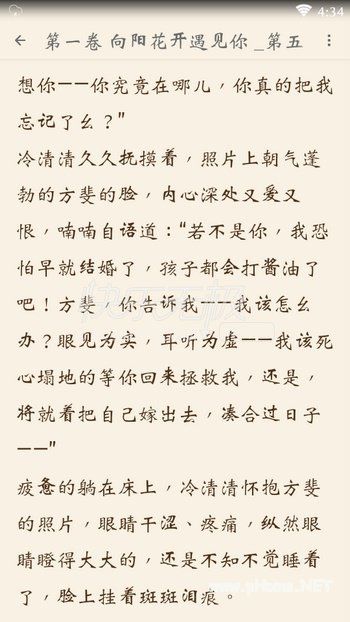 4:34
第一卷 向阳花开遇见你 _第五
想你——你究竟在哪儿，你真的把我
忘记了幺？”
冷清清久久抚摸着，照片上朝气蓬
勃的方斐的脸，内心深处又爱又
恨，喃喃自语道：“若不是你，我恐
怕早就结婚了，孩子都会打酱油了
吧！方斐，你告诉我——我该怎幺
办？眼见为实，耳听为虚——我该死
心塌地的等你回来拯救我，还是，
将就着把自己嫁出去，凑合过日子
——”
疲惫的躺在床上，冷清清怀抱方斐
的照片，眼睛干涩、疼痛，纵然眼
睛瞪得大大的，还是不知不觉睡着
了，脸上挂着斑斑泪痕。